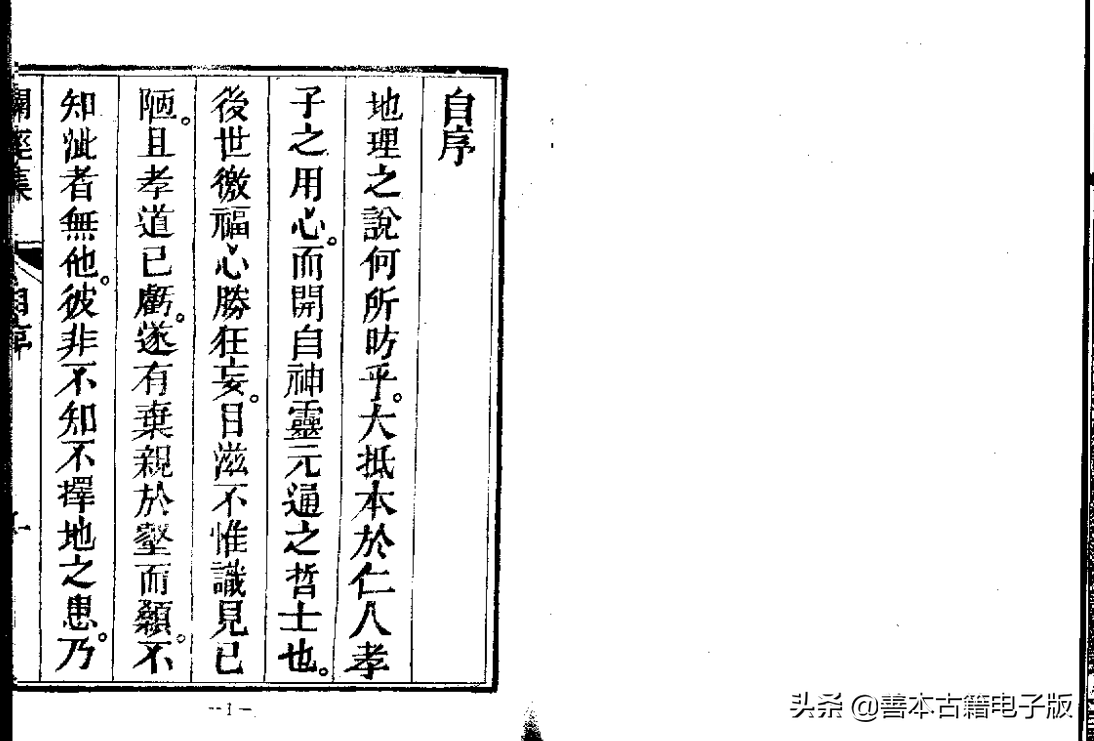 自序
地理之說何所昉乎。大抵本於仁人孝
子之用心。而開自神靈元通之哲士也。
後世徼福心勝狂妄。日滋不惟識見已
陋。且孝道已虧。遂有棄親於壑而顙不
知泚者無他。彼非不知不擇地之患。乃
自序
--1--
头条 @善本古籍电子版